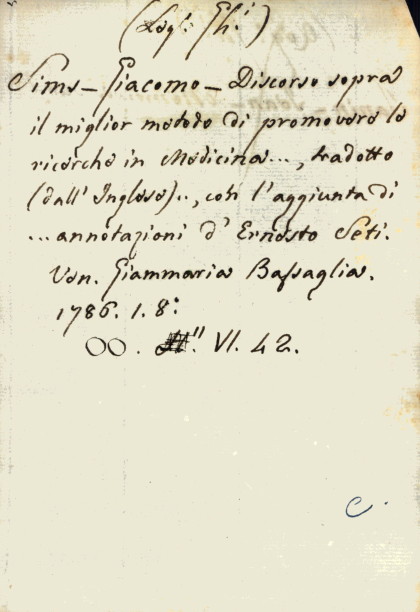 (Leg. Gh.i)
Sims - Giacomo - Discorso sopra
il miglior metodo di promovere le
ricerche in Medicina..., tradotto
(dall' Inglese).., coll l'aggiunta di
... annotazioni d' Ernesto Seti.
Ven. Giammaria Bassaglia.
1786. 1. 8.°
OO. VI. 42.
C.